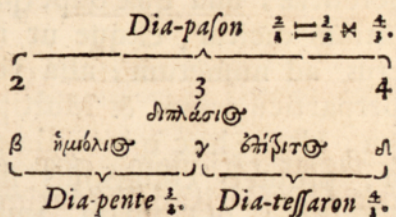 Dia-paſon 3/2 × 4/3.
2 3 4
διπλάσιος
β ἡμιόλιος γ ἐπίτριτος δ
Dia-pente 3/2. Dia-teſſaron 4/3.